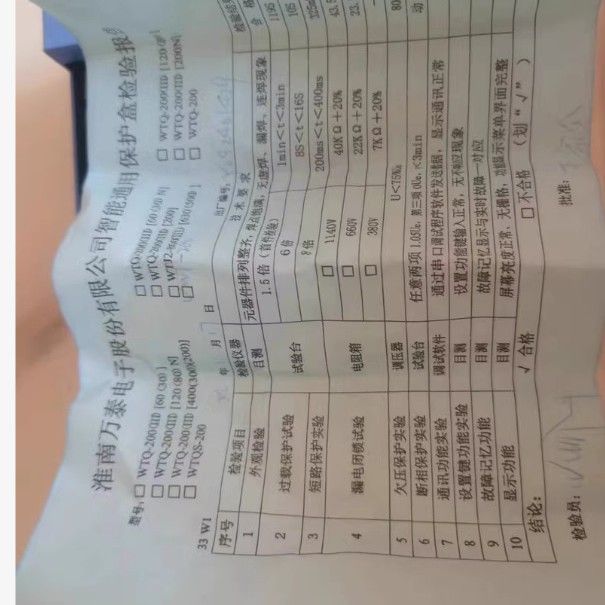 淮南万泰电子股份有限公司智能通用保护盒检验报
型号: □ WTQ-200(II)D [60(30)] □ WTQ-200(II)D [60(30) N] □ WTQ-200(II)D [120(8)]
□ WTQ-200(II)D [120(80) N] □ WTQ-200(II)D [200] □ WTQ-200(II)D [200N]
□ WTQ-200(II)D [400(300)(200)] □ [630(500)] □ WTQ-200
□ WTQS-200
33 WI 年 月 日 出厂编号:
序号 检验项目 检验仪器 技术要求 检验结果
1 外观检验 目测 元器件排列整齐, 焊点饱满, 无虚焊、漏焊、连焊现象 合格
2 过载保护试验 试验台 1.5倍 (首件检验) 1min<t<3min 119S
6倍 8S<t<16S 10S
3 短路保护实验 8倍 200ms<t<400ms
4 漏电闭锁试验 电阻箱 □ 1140V 40KΩ+20% 43.5
□ 660V 22KΩ+20% 23.
□ 380V 7KΩ+20%
5 欠压保护实验 调压器 U<75%Ue 80
6 断相保护实验 试验台 任意两项 1.05Ue, 第三项 0Ue, <3min 动
7 通讯功能实验 调试软件 通过串口调试程序软件发送数据, 显示通讯正常
8 设置键功能实验 目测 设置功能键输入正常, 无不响应现象
9 故障记忆功能 目测 故障记忆显示与实时故障一对应
10 显示功能 目测 屏幕亮度正常, 无栅格, 功能显示菜单界面完整
结论: √ 合格 □ 不合格 (划“√”)
检验员: 批准: